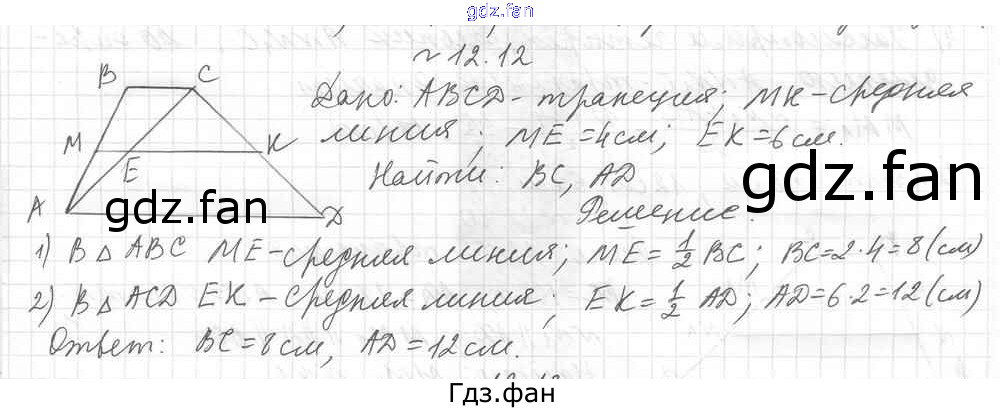 gdz.fan
№ 12.12
B C
M K
E
A D
Дано: ABCD - трапеция; MK - средняя
линия; ME = 4см; EK = 6см.
Найти: BC, AD
Решение.
gdz.fan
gdz.fan
1) В △ ABC ME - средняя линия; ME = 1/2 BC; BC = 2·4 = 8 (см)
2) В △ ACD EK - средняя линия; EK = 1/2 AD; AD = 6·2 = 12 (см)
Ответ: BC = 8 см, AD = 12 см.
Гдз.фан